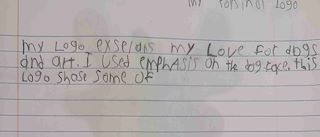 my Personal Logo
my Logo exselans my Love for dogs
and art. I used emphasis on the dog face. this
Logo shose some of